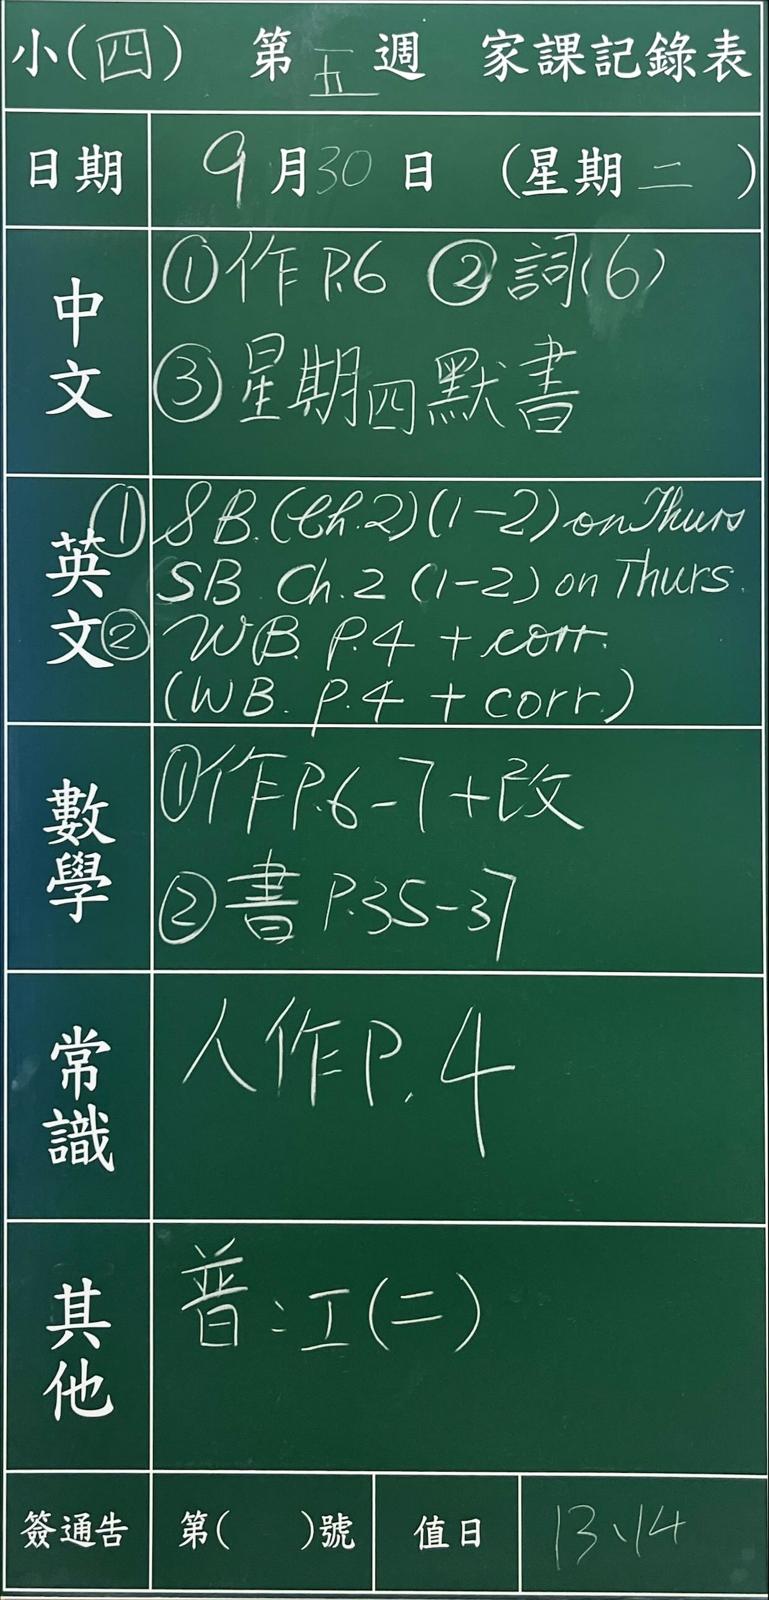 小(四) 第五週 家課記錄表
日期 9月30日 (星期二)
中文 ①作P.6 ②詞(6)
③星期四默書
英文 ① SB.(Ch.2)(1-2) on Thurs
SB. Ch.2 (1-2) on Thurs.
② WB. P.4 + corr.
(WB. P.4 + corr.)
數學 ①作P.6-7+改
②書P.35-37
常識 人作P.4
其他 普:工(二)
簽通告 第( )號 值日 13、14